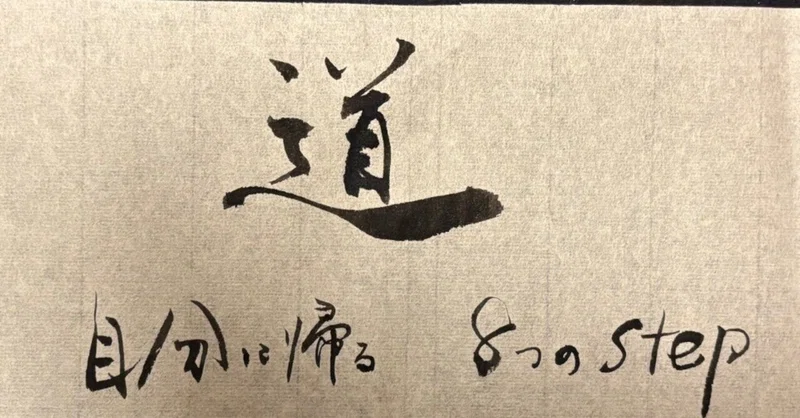 道
自分に帰る 8つのstep